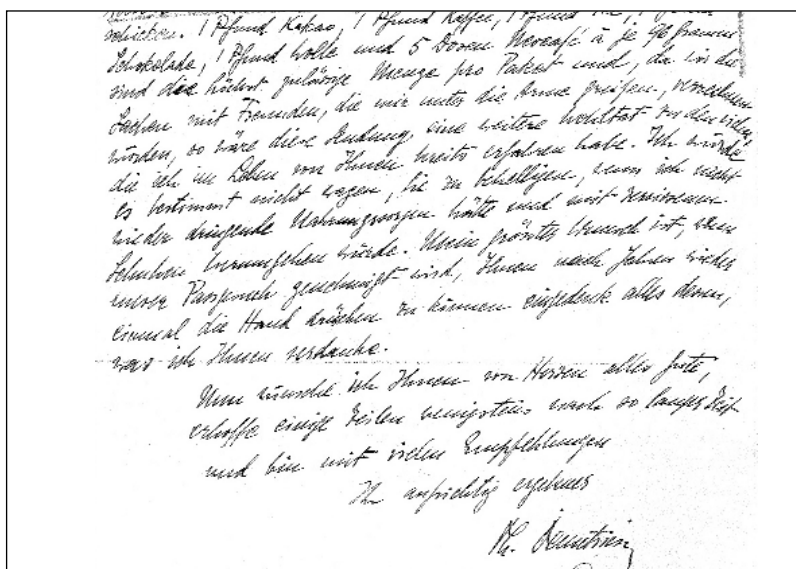 schicken. 1 Pfund Kakao, 1 Pfund Kaffee, 1 Pfund
Schokolade, 1 Pfund Wolle und 5 Dosen Nescafé à je 90 Gramm
sind die höchst zulässige Menge pro Paket und, da wir die
Sachen mit Freunden, die mir unter die Arme greifen, verrechnen
würden, so wäre diese Sendung eine weitere Wohltat zu den vielen
die ich im Leben von Ihnen bereits erfahren habe. Ich würde
es bestimmt nicht wagen, Sie zu behelligen, wenn ich nicht
wieder dringende Nahrungssorgen hätte und mit zerrissenen
Schuhen herumgehen würde. Mein grösster Wunsch ist, wenn
unser genehmigt wird, Ihnen nach Jahren wieder
einmal die Hand drücken zu können eingedenk alles dessen,
was ich Ihnen verdanke.
Nun wünsche ich Ihnen von Herzen alles Gute,
erhoffe einige Zeilen wenigstens nach so langer Zeit
und bin mit vielen Empfehlungen
Ihr aufrichtig ergebener